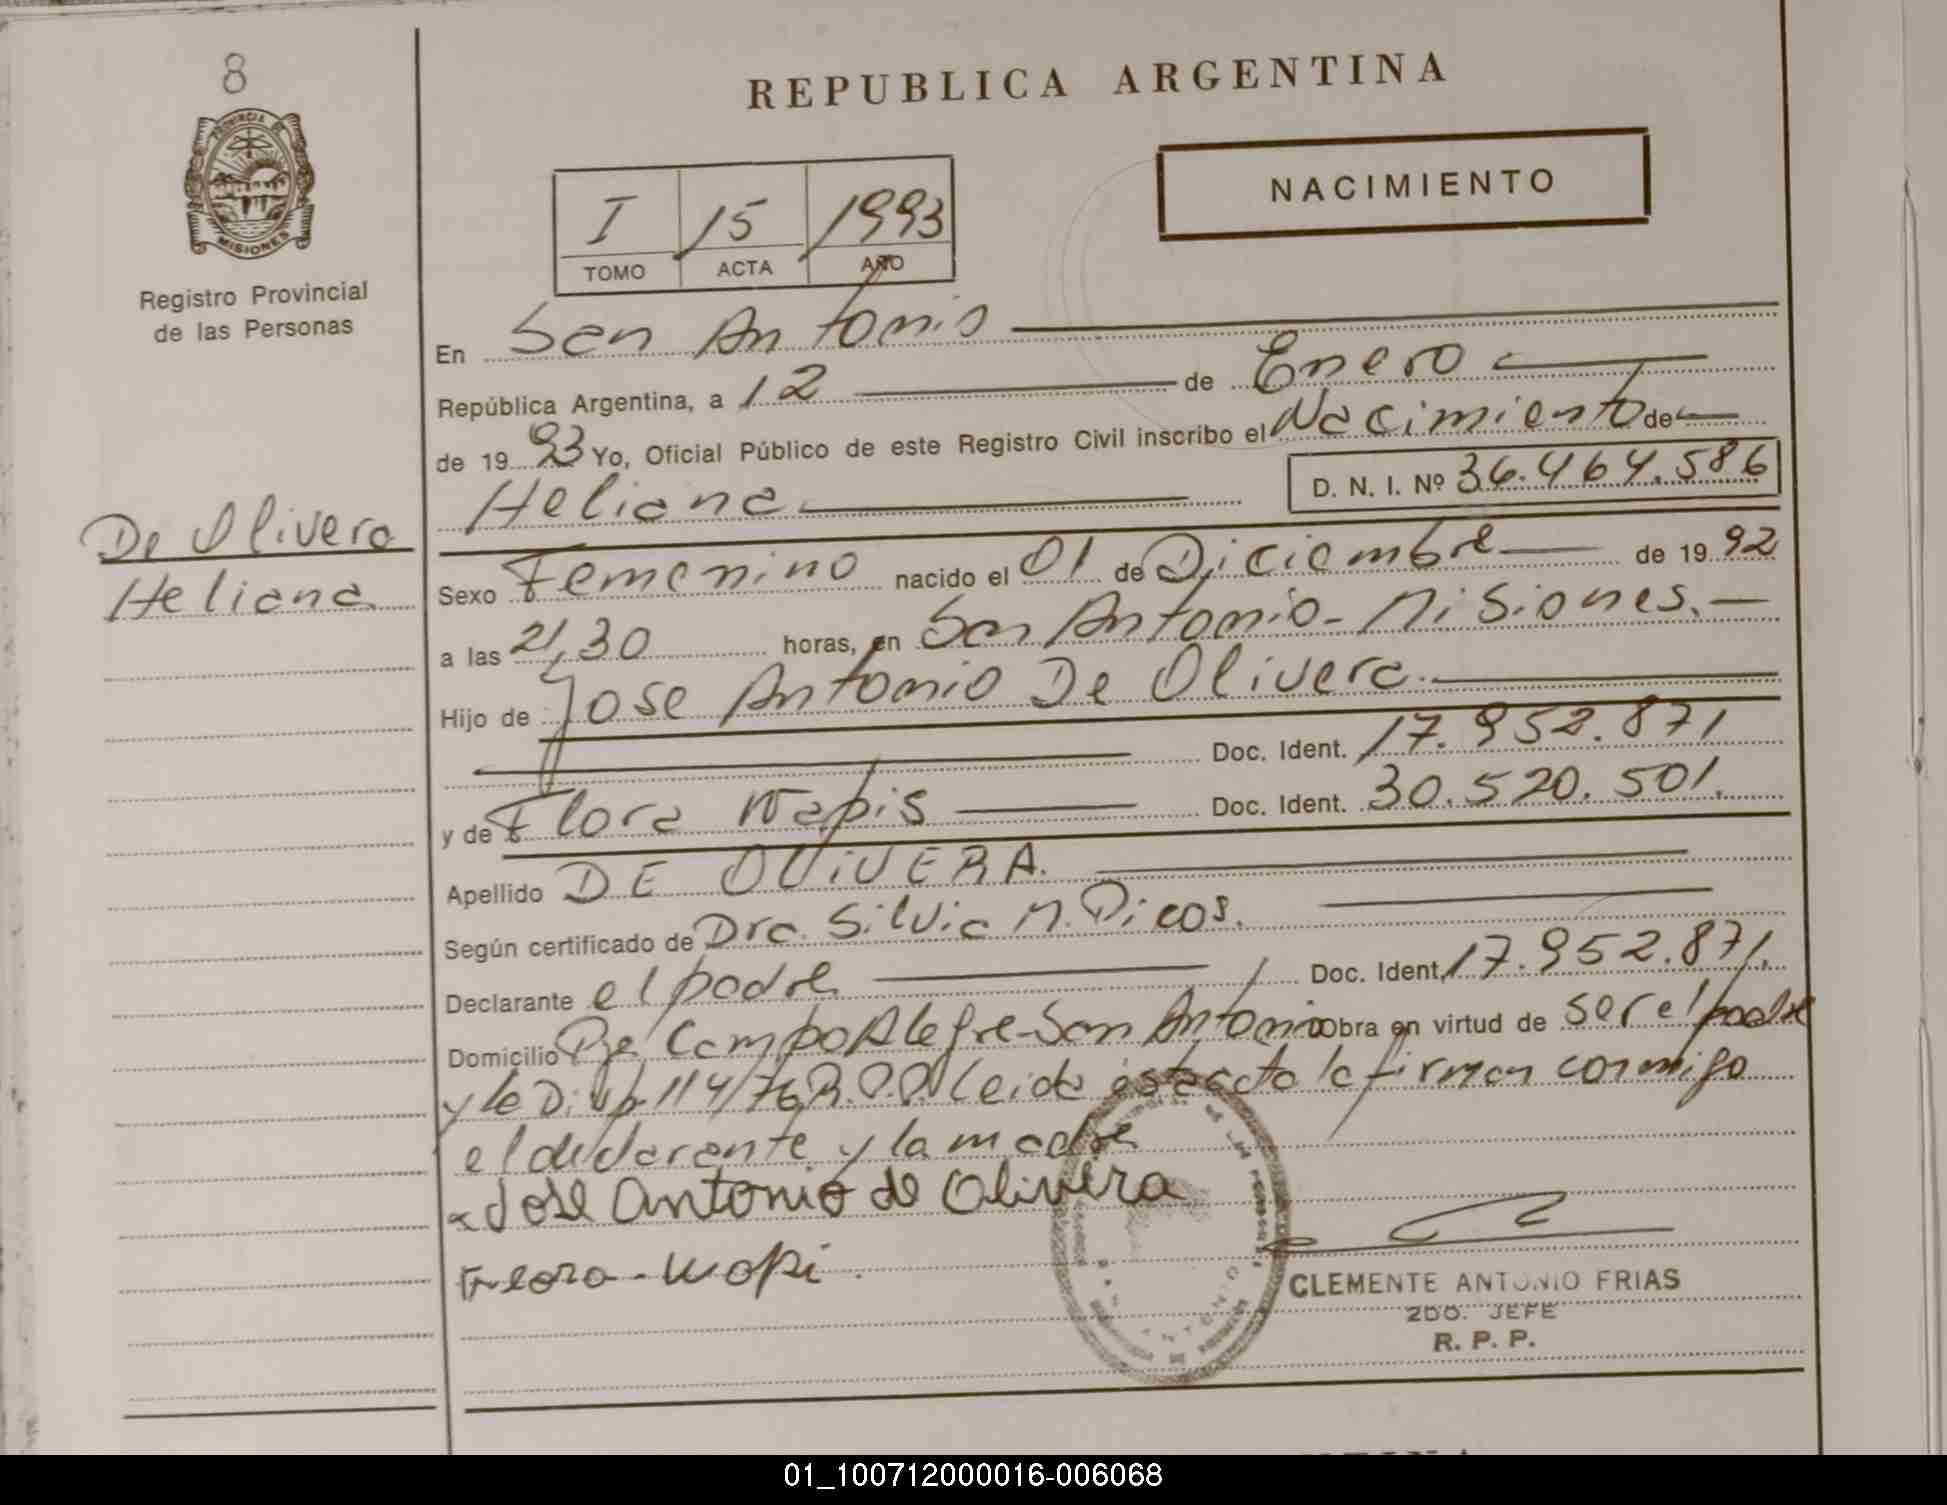 8
PROVINCIA DE
MISIONES
Registro Provincial
de las Personas
De Olivera
Heliana
REPUBLICA ARGENTINA
NACIMIENTO
I 15 1993
TOMO ACTA AÑO
En San Antonio
República Argentina, a 12 de Enero
de 19 93 Yo, Oficial Público de este Registro Civil inscribo el Nacimiento de
Heliana D. N. I. Nº 36.464.586
Sexo Femenino nacido el 01 de Diciembre de 19 92
a las 21,30 horas, en San Antonio - Misiones.
Hijo de Jose Antonio De Olivera.
Doc. Ident. 17.952.871
y de Flora Wapis Doc. Ident. 30.520.501.
Apellido DE OLIVERA.
Según certificado de Dra. Silvia M. Dicos.
Declarante el padre Doc. Ident. 17.952.871.
Domicilio Pje Campo Alegre - San Antonio obra en virtud de ser el padre
y la Disp. 114/76 R.P.P. Leida esta acta la firman conmigo
el declarante y la madre
Jose Antonio de Olivera
Flora - Wopi.
CLEMENTE ANTONIO FRIAS
2DO. JEFE
R. P. P.
01_100712000016-006068